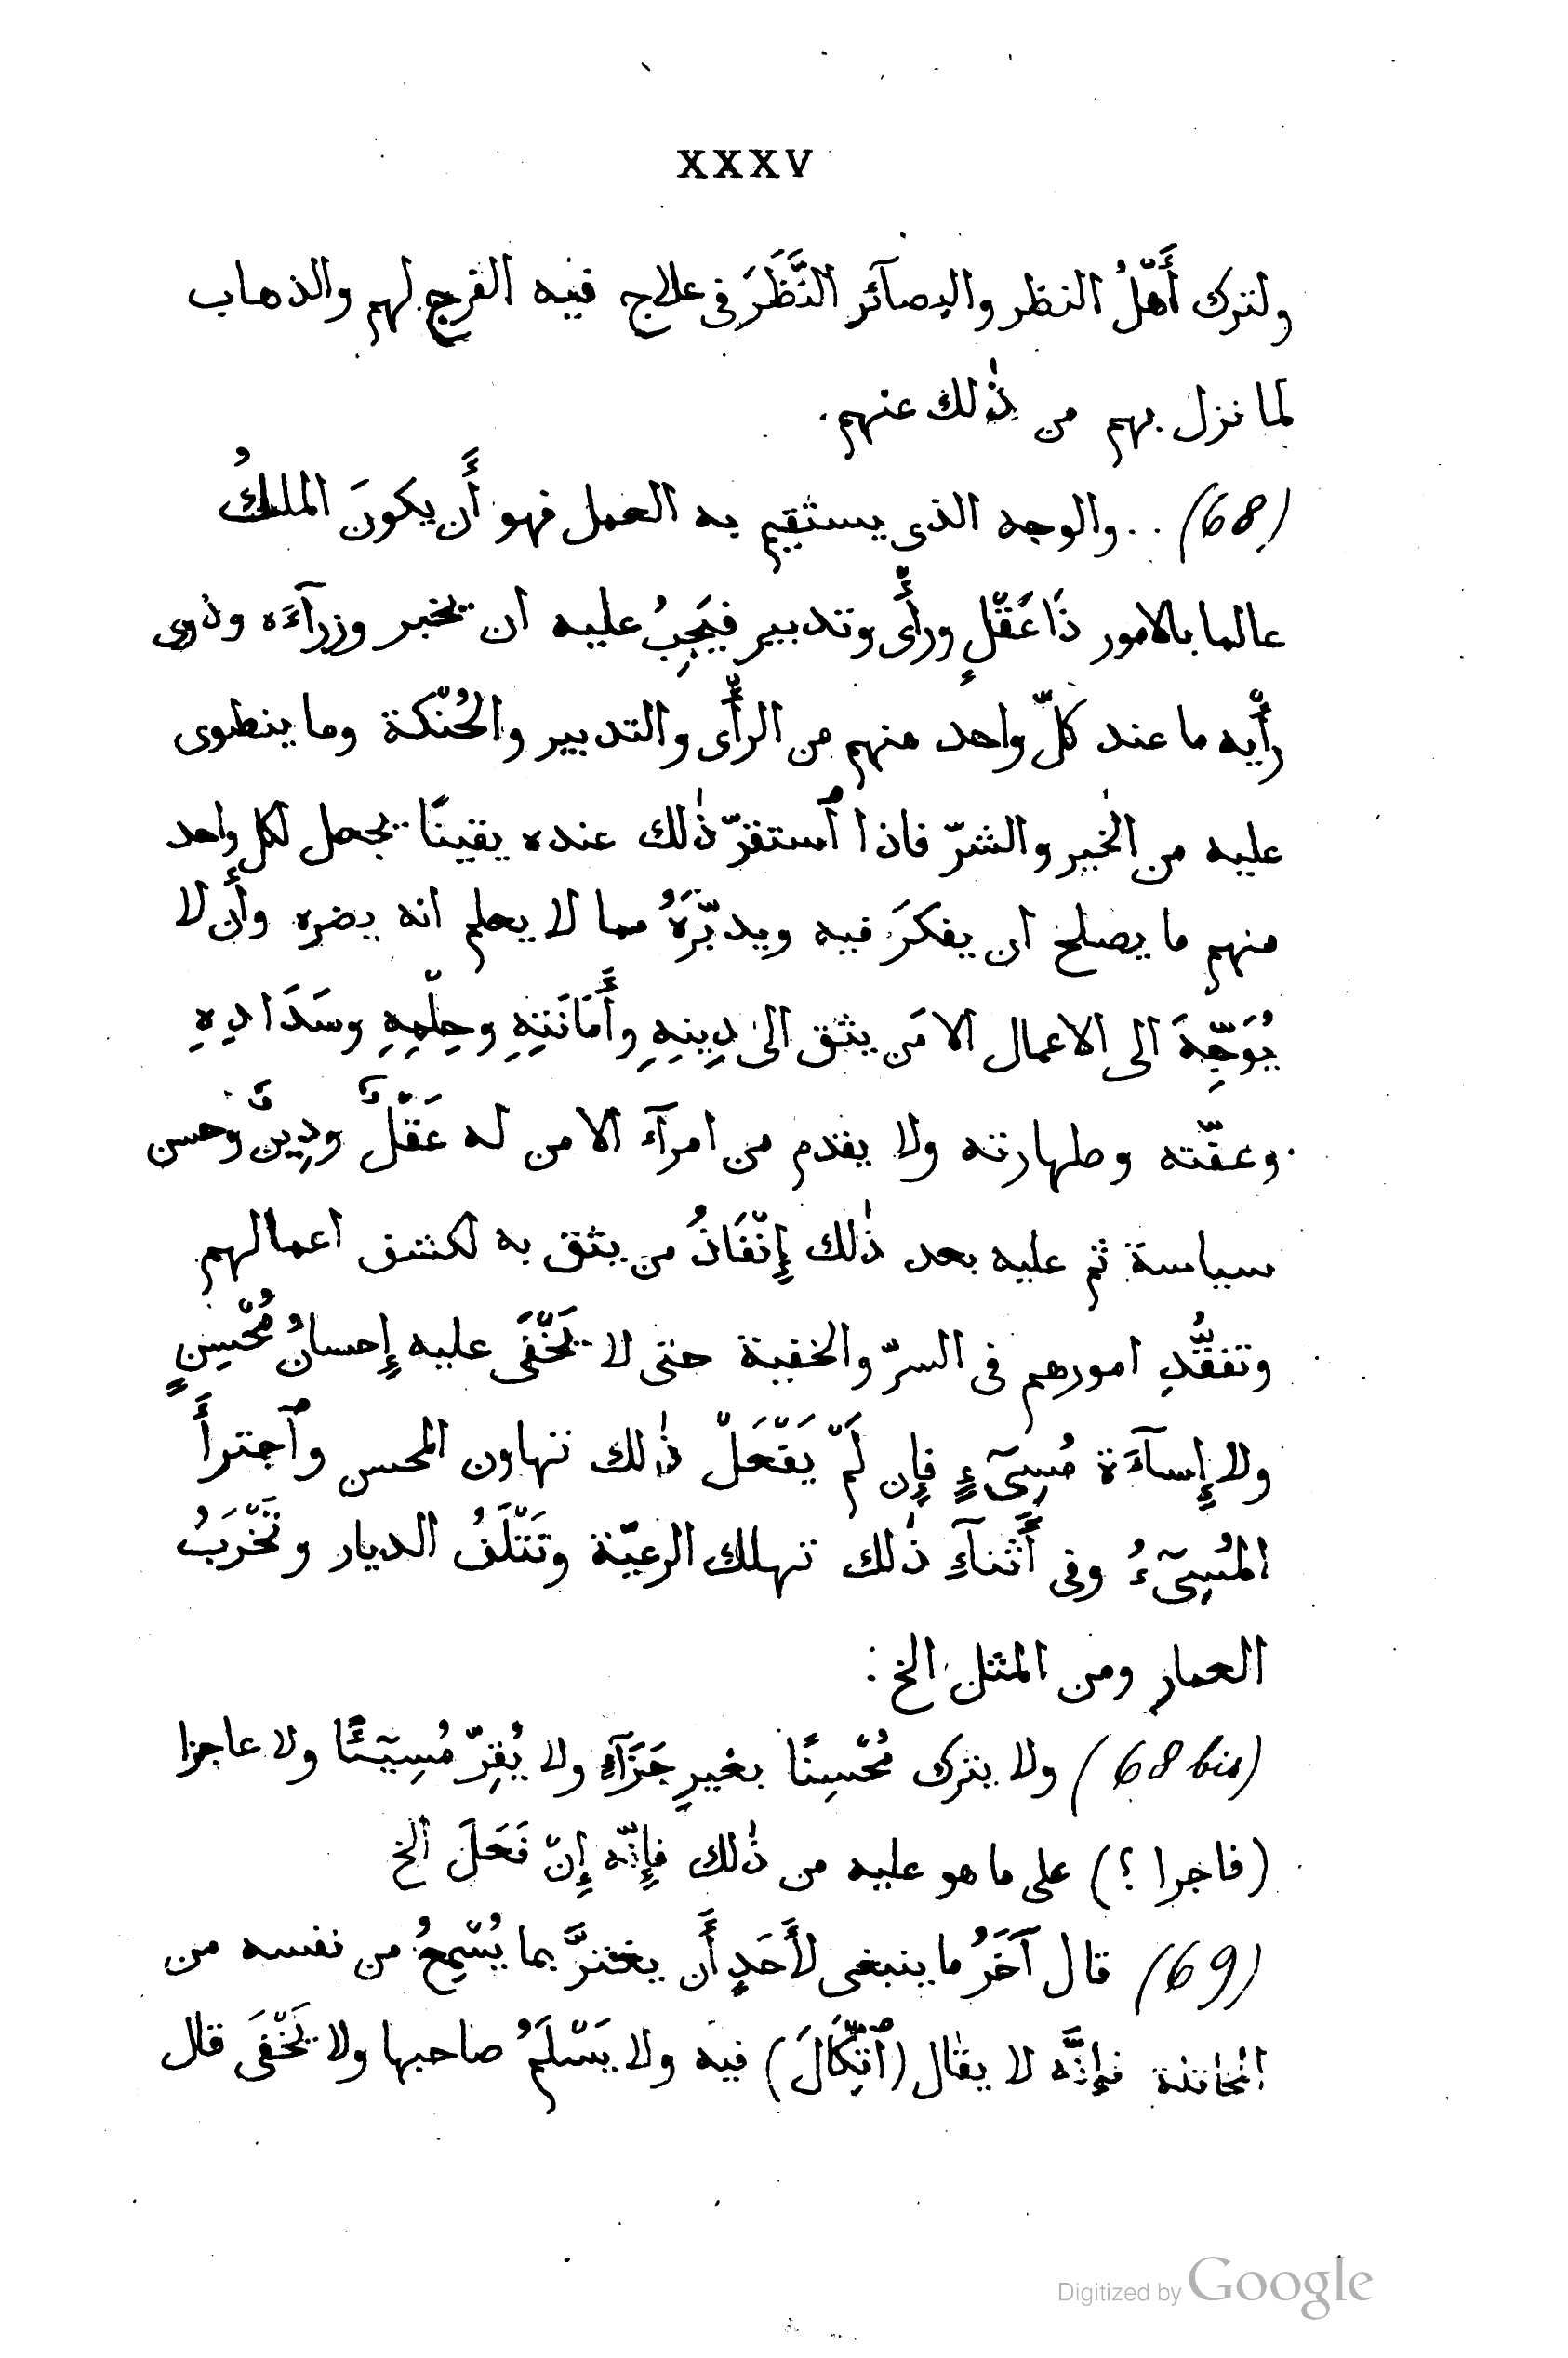 XXXV
ولترك أَهْلُ النظر والبصآئر النَّظَرَ فى علاج فيه الفرج لهم والذهاب
لما نزل بهم من ذٰلك عنهم.
(68) .. والوجه الذى يستقيم به العمل فهو أَن يكونَ الملكُ
عالما بالامور ذَا عَقْلٍ ورأْى وتدبير فيَجِبُ عليه ان يخبر وزرآءَه وذوى
رأْيه ما عند كلّ واحد منهم من الرأْى والتدبير والحُنْكة وما ينطوى
عليه من الخير والشرّ فاذا ٱستقرّ ذٰلك عنده يقينًا يجعل لكل واحد
منهم ما يصلح ان يفكرَ فيه ويدبّرَهُ مما لا يعلم انه يضره وأَن لا
يُوَجِّهَ الى الاعمال الا مَن يثق الى دِينِهِ وأَمَانَتِهِ وحِلْمِهِ وسَدَادِهِ
وعفّته وطهارته ولا يقدم من امرآء الا من له عَقْلٌ ودِينٌ وحسن
سياسة ثم عليه بعد ذٰلك إِنْفَاذُ من يثق به لكشف اعمالهم
وتفقُّدِ امورهم فى السرّ والخفية حتى لا يَخْفَى عليه إِحسانُ مُحْسِنٍ
ولا إِسآءَة مُسِىٓءٍ فإِن لَمْ يَفْعَلْ ذٰلك تهاون المحسن وٱجترأَ
المُسِىٓءُ وفى أَثنآءِ ذٰلك تهلك الرعيّة وتَتْلَفُ الديار وتَخْرَبُ
العمار ومن المثل الخ :
(68 bis) ولا يترك مُحْسِنًا بغيرِ جَزَآءٍ ولا يُقِرّ مُسِيٓئًا ولا عاجزا
(فاجرا ؟) على ما هو عليه من ذٰلك فإِنّه إِنْ فَعَلَ الخ
(69) قال آخَرُ ما ينبغى لأَحَدٍ أَن يغترَّ بما يُسْمِعُ من نفسه من
المخاتلة فإِنَّه لا يقال (ٱتِّكَالَ) فيه ولا يَسْلَمُ صاحبها ولا يَخْفَى قال
Digitized by Google